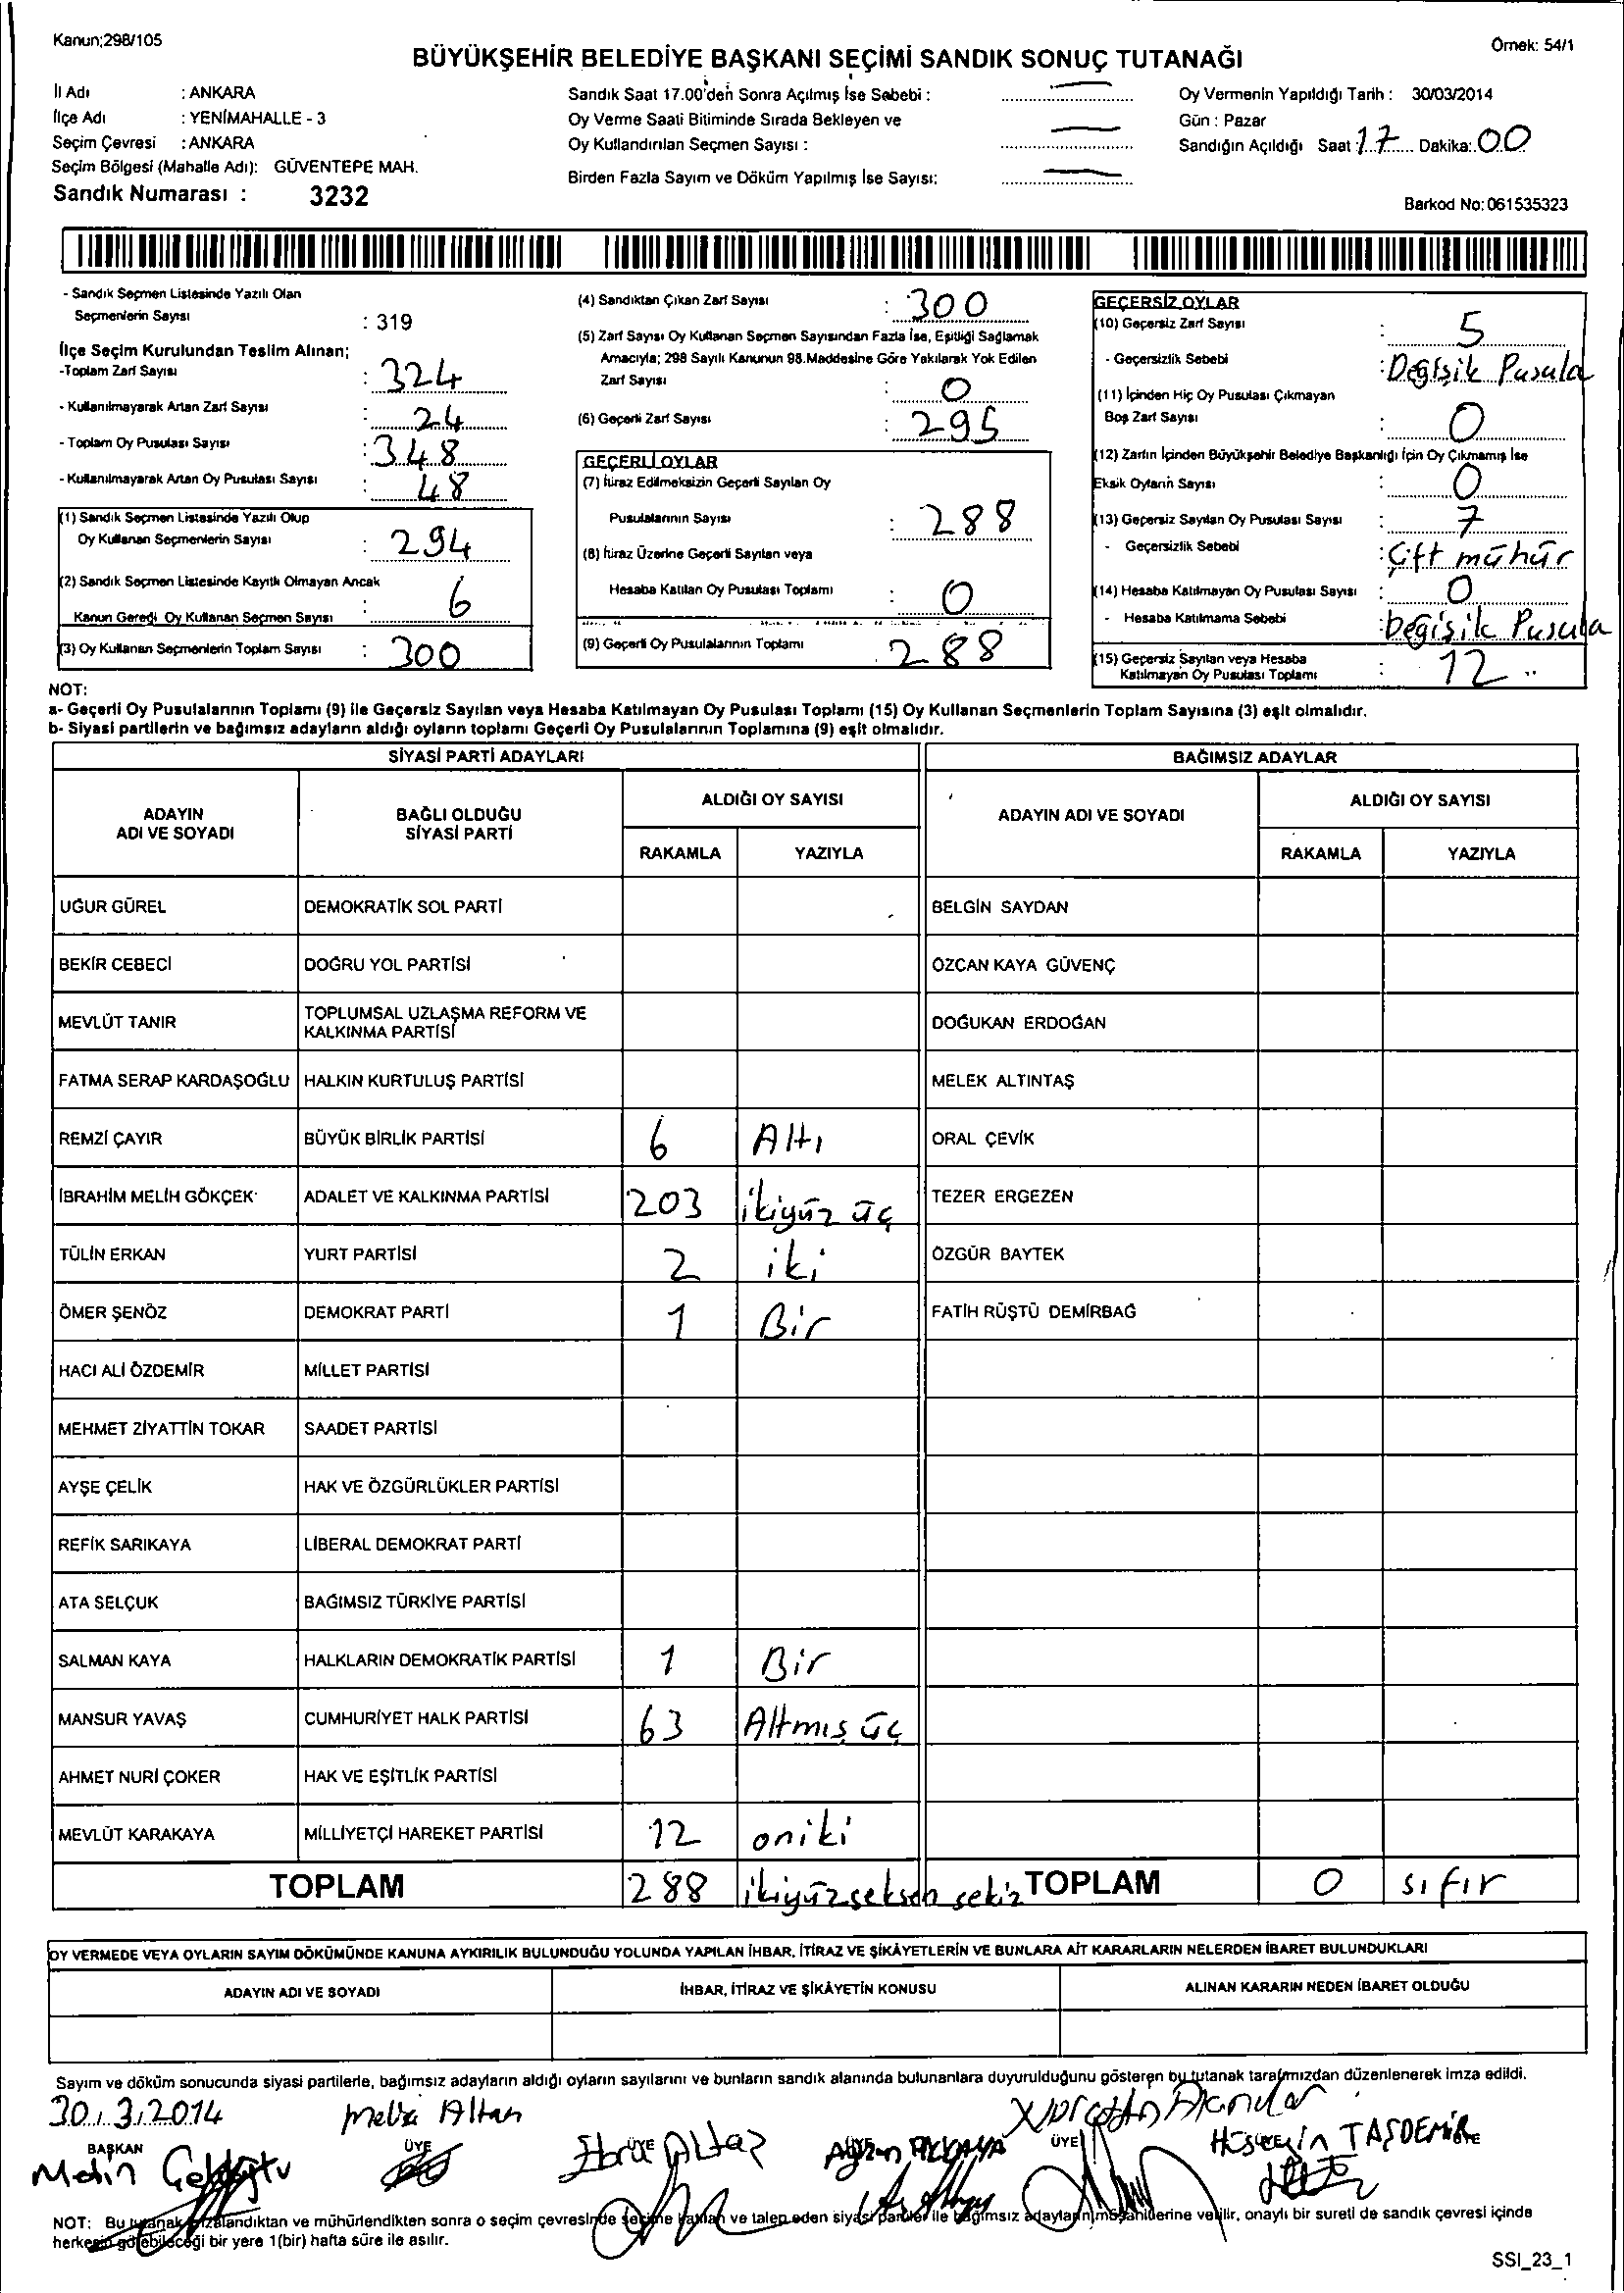 Kanun;298/105
Örnek: 54/1
BÜYÜKŞEHİR BELEDİYE BAŞKANI SEÇİMİ SANDIK SONUÇ TUTANAĞI
İl Adı : ANKARA
İlçe Adı : YENİMAHALLE - 3
Seçim Çevresi : ANKARA
Seçim Bölgesi (Mahalle Adı): GÜVENTEPE MAH.
Sandık Numarası : 3232
Sandık Saat 17.00'den Sonra Açılmış İse Sebebi :
Oy Verme Saati Bitiminde Sırada Bekleyen ve
Oy Kullandırılan Seçmen Sayısı :
Birden Fazla Sayım ve Döküm Yapılmış İse Sayısı:
Oy Vermenin Yapıldığı Tarih : 30/03/2014
Gün : Pazar
Sandığın Açıldığı Saat : 17 Dakika: 00
Barkod No: 061535323
- Sandık Seçmen Listesinde Yazılı Olan
Seçmenlerin Sayısı : 319
İlçe Seçim Kurulundan Teslim Alınan;
-Toplam Zarf Sayısı : 324
- Kullanılmayarak Artan Zarf Sayısı : 24
- Toplam Oy Pusulası Sayısı : 348
- Kullanılmayarak Artan Oy Pusulası Sayısı : 48
(1) Sandık Seçmen Listesinde Yazılı Olup
Oy Kullanan Seçmenlerin Sayısı : 294
(2) Sandık Seçmen Listesinde Kayıtlı Olmayan Ancak
Kanun Gereği Oy Kullanan Seçmen Sayısı : 6
(3) Oy Kullanan Seçmenlerin Toplam Sayısı : 300
(4) Sandıktan Çıkan Zarf Sayısı : 300
(5) Zarf Sayısı Oy Kullanan Seçmen Sayısından Fazla İse, Eşitliği Sağlamak
Amacıyla; 298 Sayılı Kanunun 98.Maddesine Göre Yakılarak Yok Edilen
Zarf Sayısı : 0
(6) Geçerli Zarf Sayısı : 295
GEÇERLİ OYLAR
(7) İtiraz Edilmeksizin Geçerli Sayılan Oy
Pusulalarının Sayısı : 288
(8) İtiraz Üzerine Geçerli Sayılan veya
Hesaba Katılan Oy Pusulası Toplamı : 0
(9) Geçerli Oy Pusulalarının Toplamı 288
GEÇERSİZ OYLAR
(10) Geçersiz Zarf Sayısı : 5
- Geçersizlik Sebebi : Değişik Pusula
(11) İçinden Hiç Oy Pusulası Çıkmayan
Boş Zarf Sayısı : 0
(12) Zarfın İçinden Büyükşehir Belediye Başkanlığı İçin Oy Çıkmamış İse
Eksik Oyların Sayısı : 0
(13) Geçersiz Sayılan Oy Pusulası Sayısı : 7
- Geçersizlik Sebebi : Çift mühür
(14) Hesaba Katılmayan Oy Pusulası Sayısı : 0
- Hesaba Katılmama Sebebi : Değişik Pusula
(15) Geçersiz Sayılan veya Hesaba
Katılmayan Oy Pusulası Toplamı : 12
NOT:
a- Geçerli Oy Pusulalarının Toplamı (9) ile Geçersiz Sayılan veya Hesaba Katılmayan Oy Pusulası Toplamı (15) Oy Kullanan Seçmenlerin Toplam Sayısına (3) eşit olmalıdır.
b- Siyasi partilerin ve bağımsız adayların aldığı oyların toplamı Geçerli Oy Pusulalarının Toplamına (9) eşit olmalıdır.
SİYASİ PARTİ ADAYLARI
BAĞIMSIZ ADAYLAR
ADAYIN
ADI VE SOYADI
BAĞLI OLDUĞU
SİYASİ PARTİ
ALDIĞI OY SAYISI
RAKAMLA YAZIYLA
ADAYIN ADI VE SOYADI
ALDIĞI OY SAYISI
RAKAMLA YAZIYLA
UĞUR GÜREL DEMOKRATİK SOL PARTİ BELGİN SAYDAN
BEKİR CEBECİ DOĞRU YOL PARTİSİ ÖZCAN KAYA GÜVENÇ
MEVLÜT TANIR TOPLUMSAL UZLAŞMA REFORM VE
KALKINMA PARTİSİ DOĞUKAN ERDOĞAN
FATMA SERAP KARDAŞOĞLU HALKIN KURTULUŞ PARTİSİ MELEK ALTINTAŞ
REMZİ ÇAYIR BÜYÜK BİRLİK PARTİSİ 6 Altı ORAL ÇEVİK
İBRAHİM MELİH GÖKÇEK ADALET VE KALKINMA PARTİSİ 203 ikiyüz üç TEZER ERGEZEN
TÜLİN ERKAN YURT PARTİSİ 2 iki ÖZGÜR BAYTEK
ÖMER ŞENÖZ DEMOKRAT PARTİ 1 Bir FATİH RÜŞTÜ DEMİRBAĞ
HACI ALİ ÖZDEMİR MİLLET PARTİSİ
MEHMET ZİYATTİN TOKAR SAADET PARTİSİ
AYŞE ÇELİK HAK VE ÖZGÜRLÜKLER PARTİSİ
REFİK SARIKAYA LİBERAL DEMOKRAT PARTİ
ATA SELÇUK BAĞIMSIZ TÜRKİYE PARTİSİ
SALMAN KAYA HALKLARIN DEMOKRATİK PARTİSİ 1 Bir
MANSUR YAVAŞ CUMHURİYET HALK PARTİSİ 63 Altmış üç
AHMET NURİ ÇOKER HAK VE EŞİTLİK PARTİSİ
MEVLÜT KARAKAYA MİLLİYETÇİ HAREKET PARTİSİ 12 oniki
TOPLAM 288 ikiyüzseksen sekiz TOPLAM 0 sıfır
OY VERMEDE VEYA OYLARIN SAYIM DÖKÜMÜNDE KANUNA AYKIRILIK BULUNDUĞU YOLUNDA YAPILAN İHBAR, İTİRAZ VE ŞİKÂYETLERİN VE BUNLARA AİT KARARLARIN NELERDEN İBARET BULUNDUKLARI
ADAYIN ADI VE SOYADI İHBAR, İTİRAZ VE ŞİKÂYETİN KONUSU ALINAN KARARIN NEDEN İBARET OLDUĞU
Sayım ve döküm sonucunda siyasi partilerle, bağımsız adayların aldığı oyların sayılarını ve bunların sandık alanında bulunanlara duyurulduğunu gösteren bu tutanak tarafımızdan düzenlenerek imza edildi.
30/3/2014 Altan
BAŞKAN ÜYE ÜYE ÜYE ÜYE ÜYE
Metin
Hüseyin TAŞDEMİR
NOT: Bu tutanak imzalandıktan ve mühürlendikten sonra o seçim çevresinde seçime katılan ve talep eden siyasi partiler ile bağımsız adayların müşahitlerine verilir, onaylı bir sureti de sandık çevresi içinde
herkesin görebileceği bir yere 1(bir) hafta süre ile asılır.
SSI_23_1